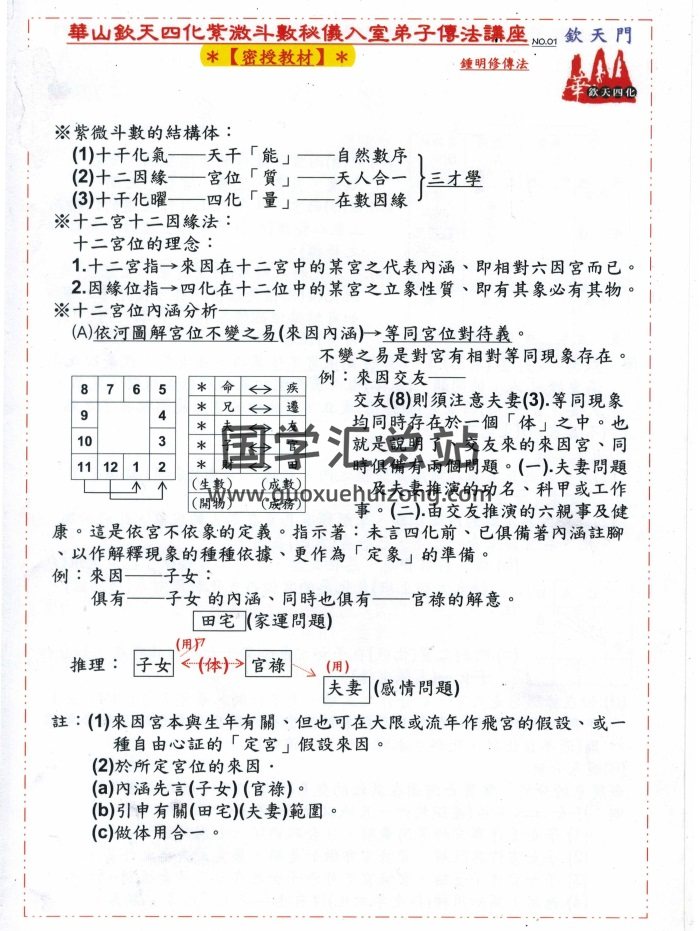 華山欽天四化紫微斗數秘儀入室弟子傳法講座 NO.01 欽天門
*【密授教材】*
鍾明修傳法
華 欽天四化
※紫微斗數的結構体：
(1)十干化氣——天干「能」——自然數序
(2)十二因緣——宮位「質」——天人合一 三才學
(3)十干化曜——四化「量」——在數因緣
※十二宮十二因緣法：
十二宮位的理念：
1.十二宮指→來因在十二宮中的某宮之代表內涵、即相對六因宮而已。
2.因緣位指→四化在十二位中的某宮之立象性質、即有其象必有其物。
※十二宮位內涵分析————
(A)依河圖解宮位不變之易(來因內涵)→等同宮位對待義。
不變之易是對宮有相對等同現象存在。
8 7 6 5
9 4
10 3
11 12 1 2
* 命 ↔ 疾
* 兄 ↔ 遷
* 夫 ↔ 友
* 子 ↔ 官
* 財 ↔ 田
(生數) (成數)
(開物) (成務)
例：來因交友——
交友(8)則須注意夫妻(3).等同現象
均同時存在於一個「体」之中。也
就是說明了、交友來的來因宮、同
時俱備有兩個問題。(一).夫妻問題
、及夫妻推演的功名、科甲或工作
事。(二).由交友推演的六親事及健
康。這是依宮不依象的定義。指示著：未言四化前、已俱備著內涵註腳
、以作解釋現象的種種依據、更作為「定象」的準備。
例：來因——子女：
俱有——子女 的內涵、同時也俱有——官祿的解意。
田宅 (家運問題)
(用)
推理： 子女 (体) 官祿
(用)
夫妻 (感情問題)
註：(1)來因宮本與生年有關、但也可在大限或流年作飛宮的假設、或一
種自由心証的「定宮」假設來因。
(2)於所定宮位的來因．
(a)內涵先言(子女) (官祿)。
(b)引申有關(田宅)(夫妻)範圍。
(c)做体用合一。
国学汇总站
www.guoxuehuizong.com